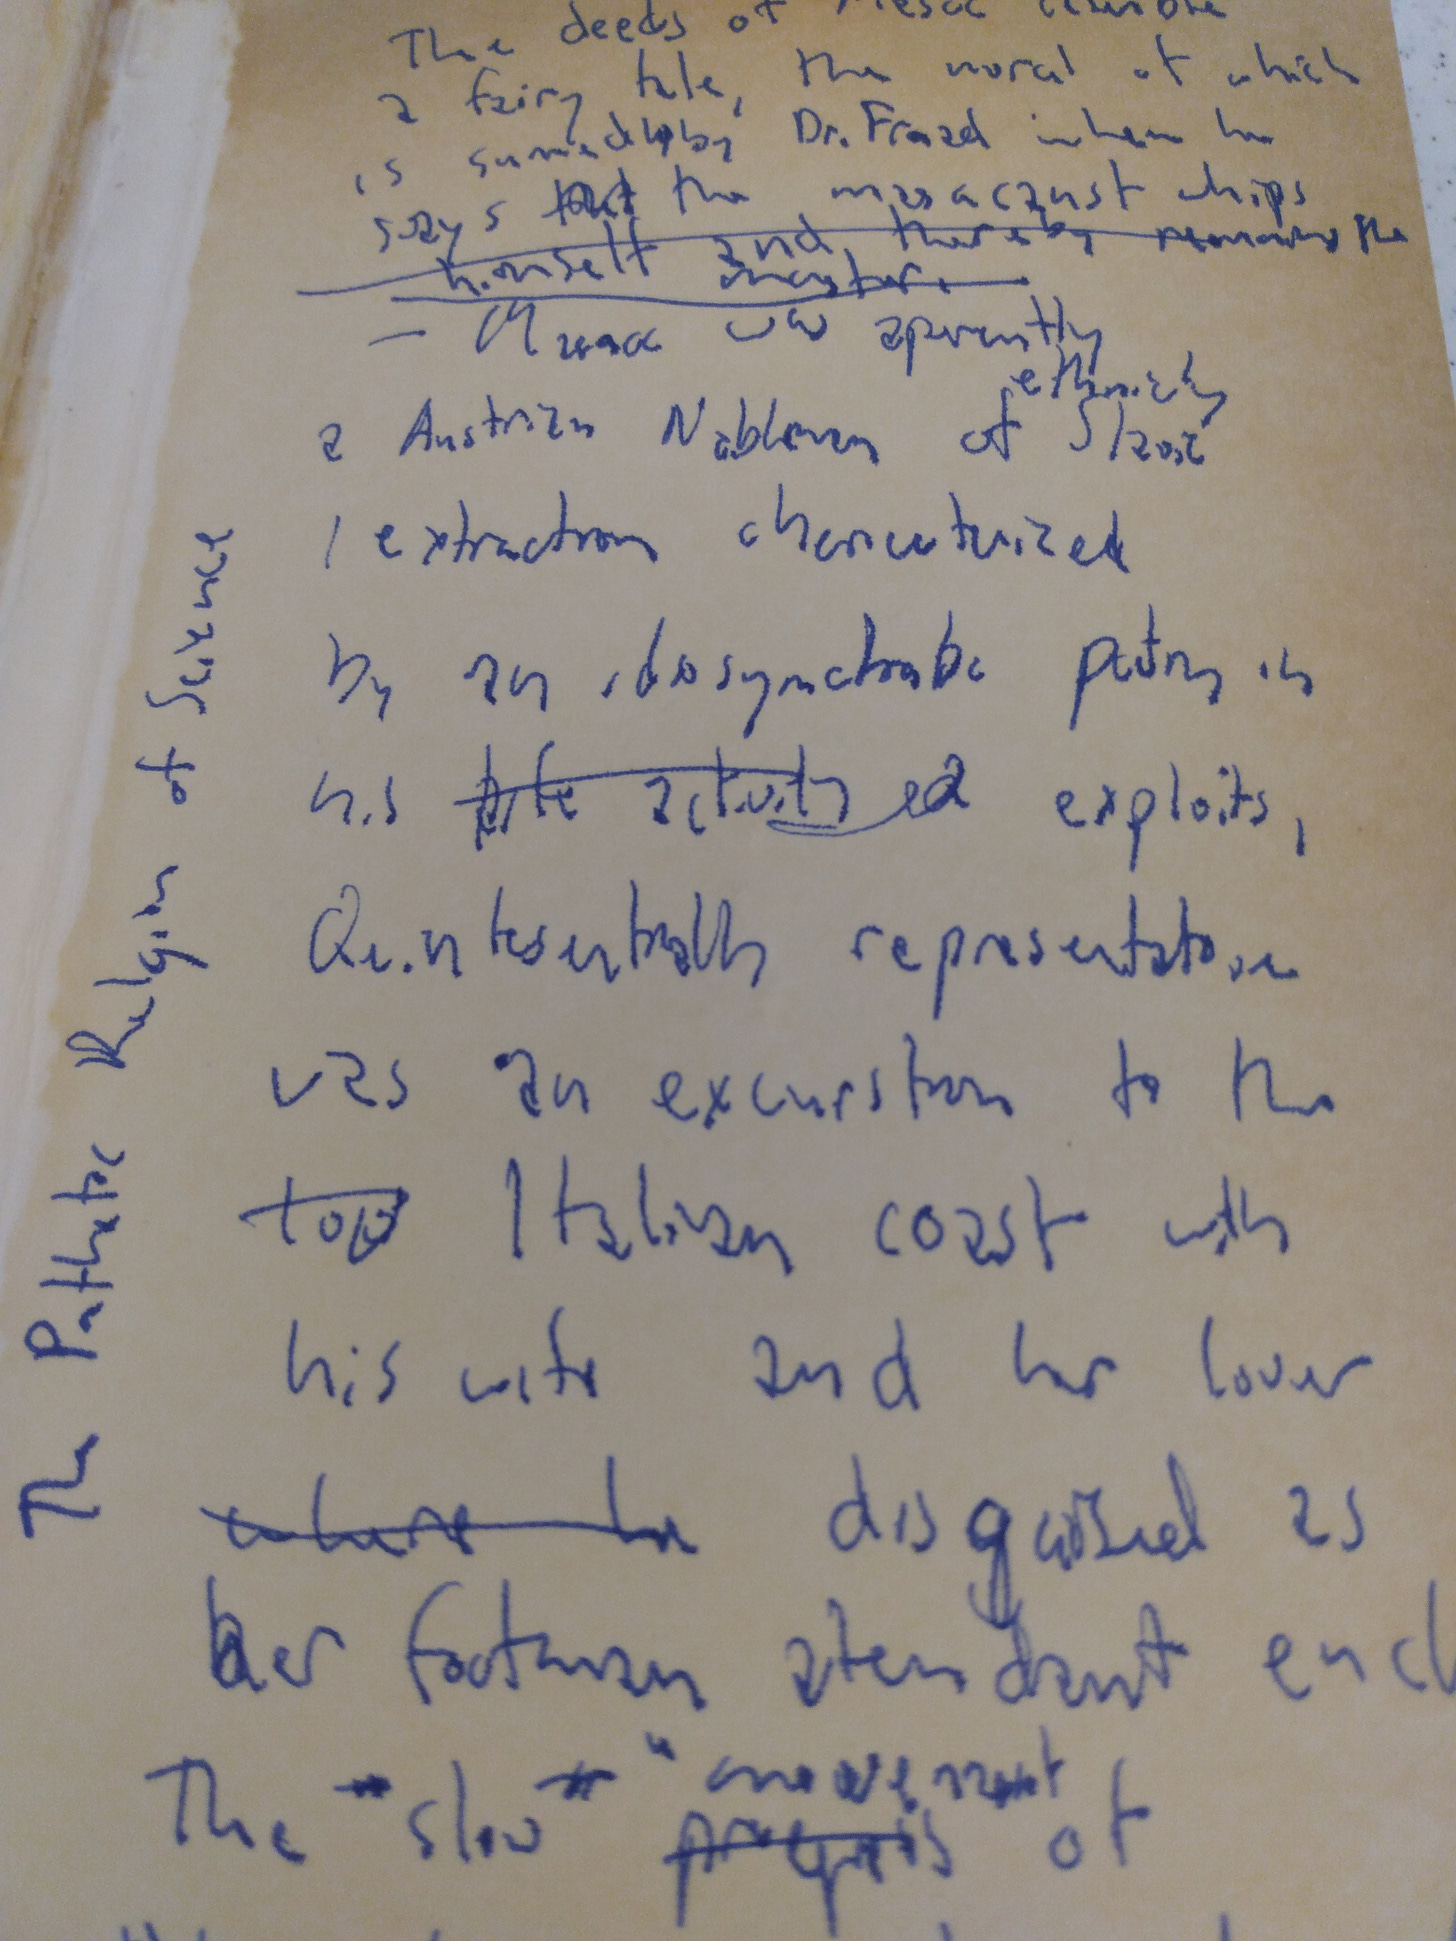 The deeds of Mesoc resemble
a fairy tale, the moral of which
is sumed up by Dr. Frazel when he
says that the masacanst whips
himself and, thereby remains the
master.
– was aparently
ethnicly
a Austrian Nobleman of Slavic
extraction charicuterized
by an idiosynctratic patern in
his life activity exploits,
Quintesentrally representative
was an excurstion to the
too Italian coast with
his wife and her lover
where he disguised as
her footman atendant and
"movement
The "slow" progress of
The Pathetic Religion of Science